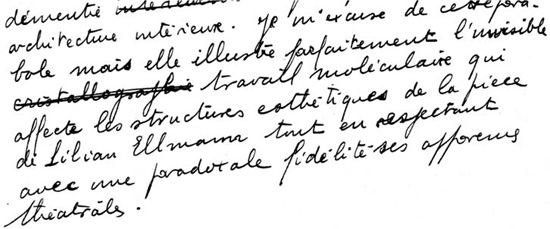 démentie
architecture intérieure. Je m'excuse de cette para-
bole mais elle illustre parfaitement l'invisible
cristallographie travail moléculaire qui
affecte les structures esthétiques de la pièce
de Lilian Ellmann tout en respectant
avec une paradoxale fidélité ses
théâtrales.